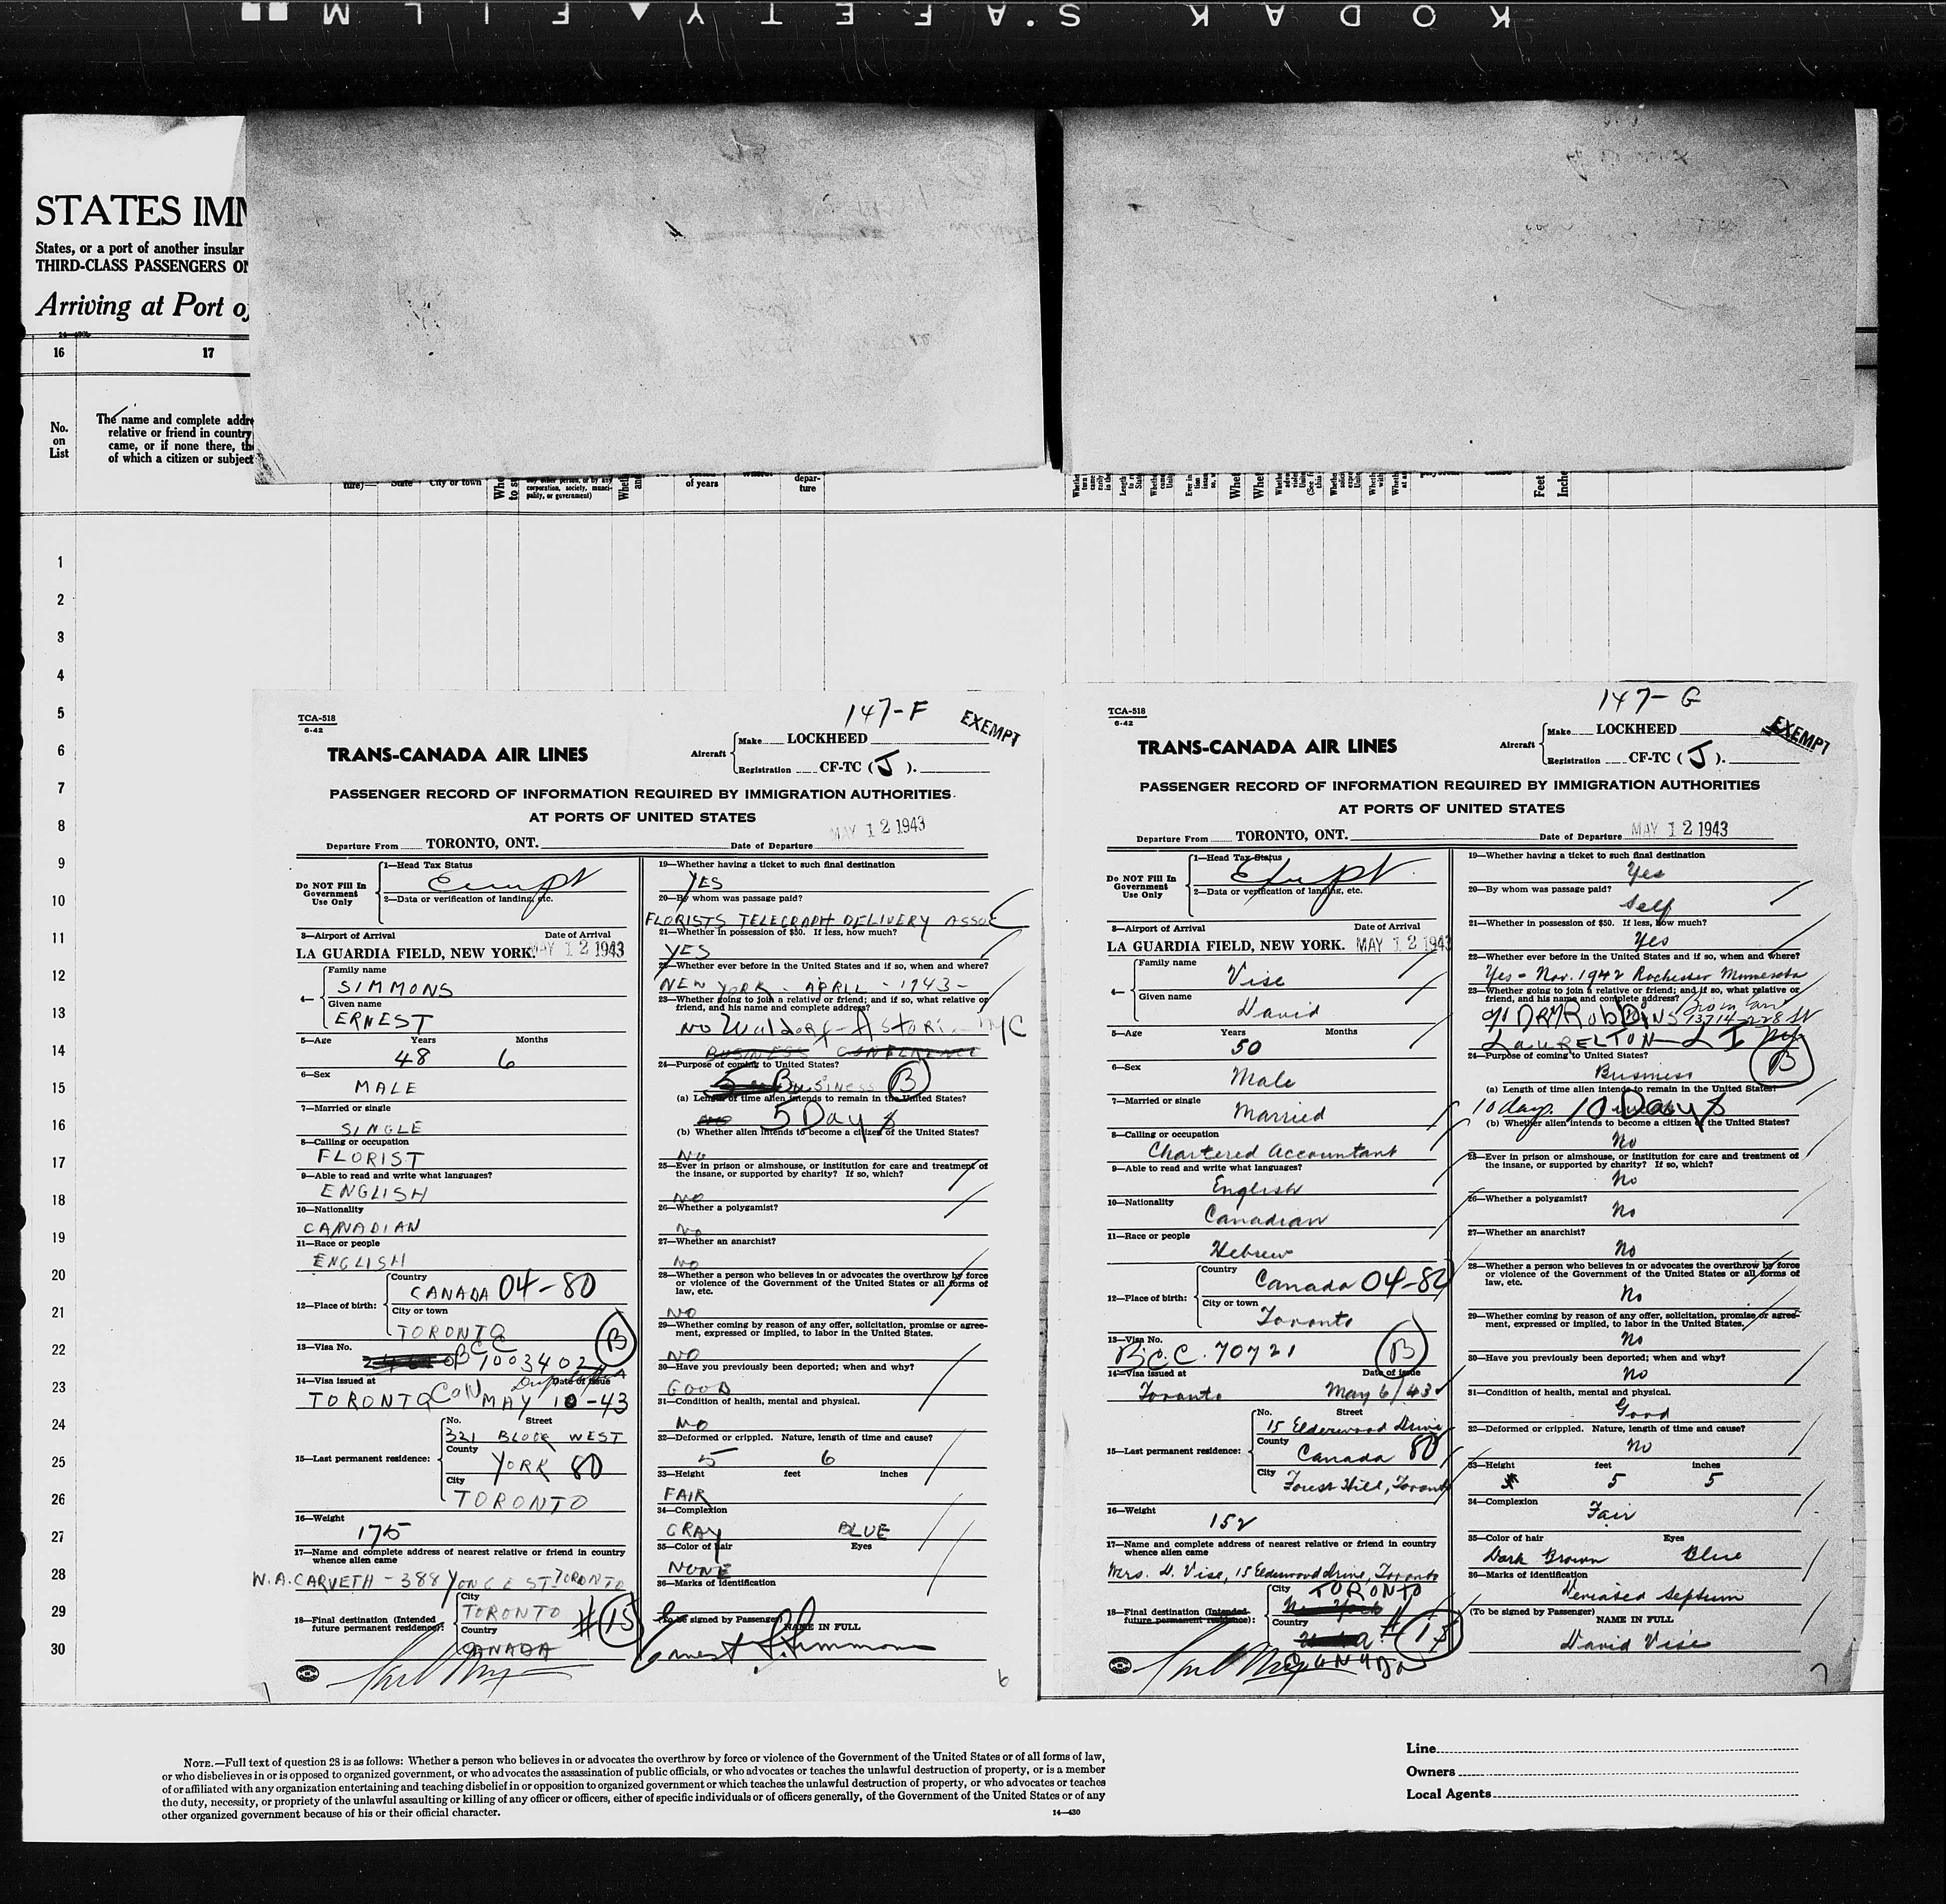 KODAK SAFETY FILM
STATES IMM
States, or a port of another insular
THIRD-CLASS PASSENGERS ON
Arriving at Port of
16 17
No.
on
List
The name and complete addre
relative or friend in country
came, or if none there, th
of which a citizen or subject
ture)— State City or town
any other person, or by any
corporation, society, munici-
pality, or government)
of years
depar-
ture
Feet
Inche
1
2
3
4
5
6
7
8
9
10
11
12
13
14
15
16
17
18
19
20
21
22
23
24
25
26
27
28
29
30
TCA-518
6-42
147-F
EXEMPT
TRANS-CANADA AIR LINES
Aircraft Make LOCKHEED
Registration CF-TC (J).
PASSENGER RECORD OF INFORMATION REQUIRED BY IMMIGRATION AUTHORITIES
AT PORTS OF UNITED STATES
Departure From TORONTO, ONT. Date of Departure MAY 12 1943
Do NOT Fill In
Government
Use Only
1—Head Tax Status
Exempt
2—Data or verification of landing, etc.
3—Airport of Arrival Date of Arrival
LA GUARDIA FIELD, NEW YORK. MAY 12 1943
4— Family name
SIMMONS
Given name
ERNEST
5—Age Years Months
48 6
6—Sex
MALE
7—Married or single
SINGLE
8—Calling or occupation
FLORIST
9—Able to read and write what languages?
ENGLISH
10—Nationality
CANADIAN
11—Race or people
ENGLISH
12—Place of birth: Country
CANADA 04-80
City or town
TORONTO
13—Visa No.
BCC 1003402 B
14—Visa issued at Date of Issue
TORONTO CAN MAY 10-43
15—Last permanent residence:
No. Street
321 BLOOR WEST
County
YORK 80
City
TORONTO
16—Weight
175
17—Name and complete address of nearest relative or friend in country
whence alien came
W.A. CARVETH - 388 YONGE ST TORONTO
18—Final destination (Intended
future permanent residence):
City
TORONTO
Country
CANADA
# 15
19—Whether having a ticket to such final destination
YES
20—By whom was passage paid?
FLORISTS TELEGRAPH DELIVERY ASSOC
21—Whether in possession of $50. If less, how much?
YES
22—Whether ever before in the United States and if so, when and where?
NEW YORK - APRIL - 1943 -
23—Whether going to join a relative or friend; and if so, what relative or
friend, and his name and complete address?
NO Waldorf-Astoria NYC
BUSINESS CONFERENCE
24—Purpose of coming to United States?
Business B
(a) Length of time alien intends to remain in the United States?
5 Days
(b) Whether alien intends to become a citizen of the United States?
NO
25—Ever in prison or almshouse, or institution for care and treatment of
the insane, or supported by charity? If so, which?
NO
26—Whether a polygamist?
No
27—Whether an anarchist?
NO
28—Whether a person who believes in or advocates the overthrow by force
or violence of the Government of the United States or all forms of
law, etc.
NO
29—Whether coming by reason of any offer, solicitation, promise or agree-
ment, expressed or implied, to labor in the United States.
NO
30—Have you previously been deported; when and why?
GOOD
31—Condition of health, mental and physical.
NO
32—Deformed or crippled. Nature, length of time and cause?
5 6
33—Height feet inches
FAIR
34—Complexion
GRAY BLUE
35—Color of hair Eyes
NONE
36—Marks of identification
(To be signed by Passenger)
NAME IN FULL
Ernest S. Simmons
6
TCA-518
6-42
147-G
EXEMPT
TRANS-CANADA AIR LINES
Aircraft Make LOCKHEED
Registration CF-TC (J).
PASSENGER RECORD OF INFORMATION REQUIRED BY IMMIGRATION AUTHORITIES
AT PORTS OF UNITED STATES
Departure From TORONTO, ONT. Date of Departure MAY 12 1943
Do NOT Fill In
Government
Use Only
1—Head Tax Status
Exempt
2—Data or verification of landing, etc.
3—Airport of Arrival Date of Arrival
LA GUARDIA FIELD, NEW YORK. MAY 12 1943
4— Family name
Vise
Given name
David
5—Age Years Months
50
6—Sex
Male
7—Married or single
Married
8—Calling or occupation
Chartered Accountant
9—Able to read and write what languages?
English
10—Nationality
Canadian
11—Race or people
Hebrew
12—Place of birth: Country
Canada 04-80
City or town
Toronto
13—Visa No.
B.C.C. 70721 B
14—Visa issued at Date of Issue
Toronto May 6/43
15—Last permanent residence:
No. Street
15 Elderwood Drive
County
Canada 80
City
Forest Hill, Toronto
16—Weight
152
17—Name and complete address of nearest relative or friend in country
whence alien came
Mrs. D. Vise, 15 Elderwood Drive, Toronto
18—Final destination (Intended
future permanent residence):
City
TORONTO
New York
Country
# 15
CANADA
19—Whether having a ticket to such final destination
Yes
20—By whom was passage paid?
Self
21—Whether in possession of $50. If less, how much?
Yes
22—Whether ever before in the United States and if so, when and where?
Yes - Nov. 1942 Rochester Minnesota
23—Whether going to join a relative or friend; and if so, what relative or
friend, and his name and complete address?
DR M Robbins 13714-228 St
LAURELTON L I NY
24—Purpose of coming to United States?
Business B
(a) Length of time alien intends to remain in the United States?
10 days. 10 Days
(b) Whether alien intends to become a citizen of the United States?
No
25—Ever in prison or almshouse, or institution for care and treatment of
the insane, or supported by charity? If so, which?
No
26—Whether a polygamist?
No
27—Whether an anarchist?
No
28—Whether a person who believes in or advocates the overthrow by force
or violence of the Government of the United States or all forms of
law, etc.
No
29—Whether coming by reason of any offer, solicitation, promise or agree-
ment, expressed or implied, to labor in the United States.
No
30—Have you previously been deported; when and why?
No
31—Condition of health, mental and physical.
Good
32—Deformed or crippled. Nature, length of time and cause?
No
33—Height feet inches
5 5
34—Complexion
Fair
35—Color of hair Eyes
Dark Brown Blue
36—Marks of identification
Deviated Septum
(To be signed by Passenger)
NAME IN FULL
David Vise
7
NOTE.—Full text of question 28 is as follows: Whether a person who believes in or advocates the overthrow by force or violence of the Government of the United States or of all forms of law,
or who disbelieves in or is opposed to organized government, or who advocates the assassination of public officials, or who advocates or teaches the unlawful destruction of property, or is a member
of or affiliated with any organization entertaining and teaching disbelief in or opposition to organized government or which teaches the unlawful destruction of property, or who advocates or teaches
the duty, necessity, or propriety of the unlawful assaulting or killing of any officer or officers, either of specific individuals or of officers generally, of the Government of the United States or of any
other organized government because of his or their official character.
14—430
Line
Owners
Local Agents